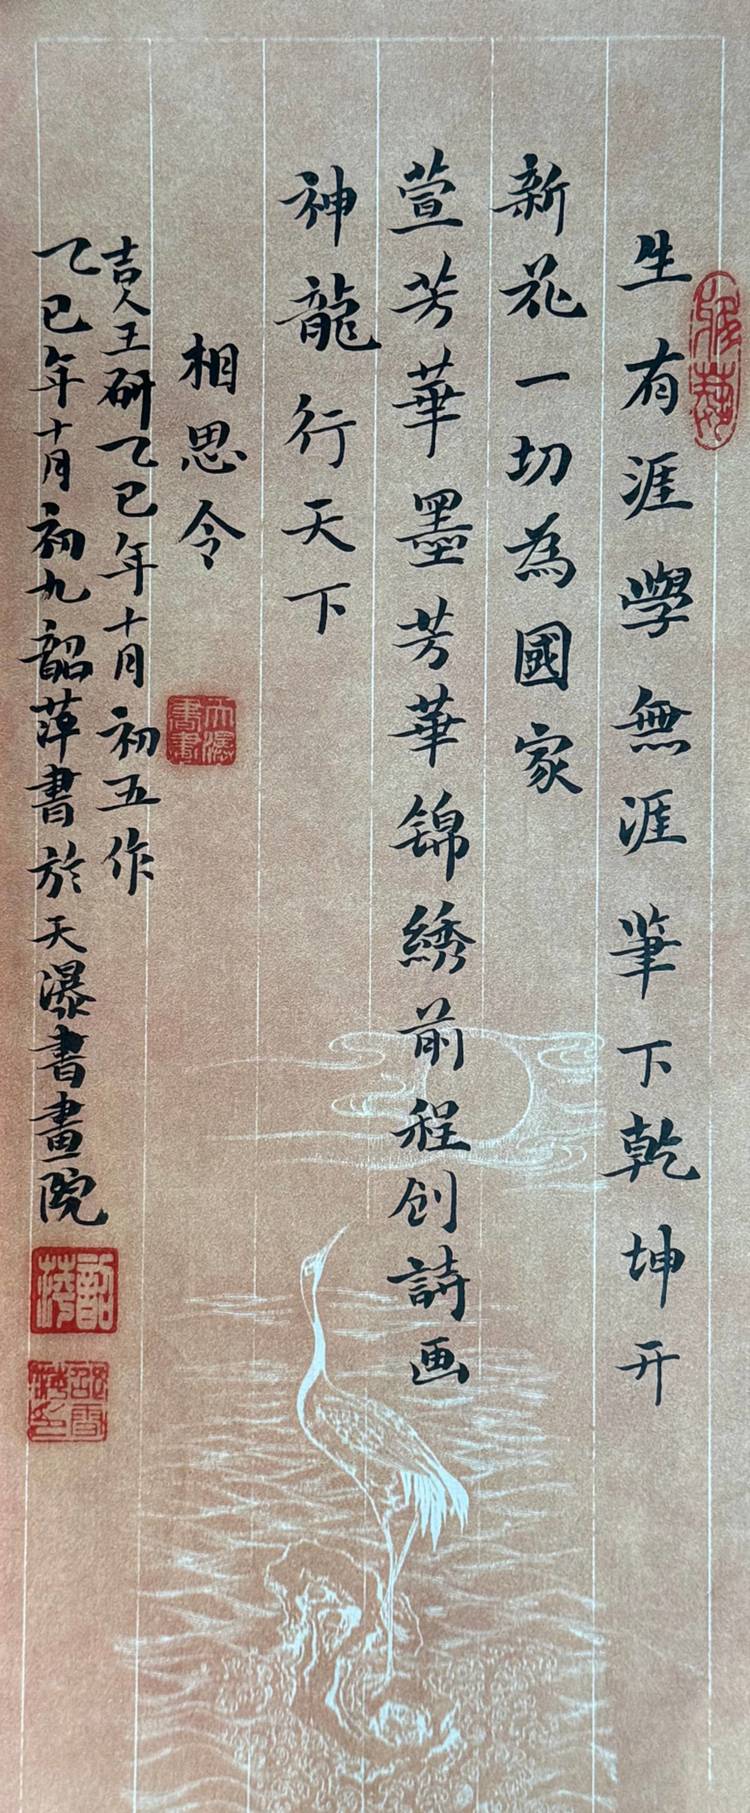 生有涯學無涯筆下乾坤开
新花一切為國家
萱芳華墨芳華錦绣前程创詩画
神龍行天下
相思令
吉人王研乙巳年十月初五作
乙巳年十月初九韶萍書於天瀑書畫院
天瀑書畫